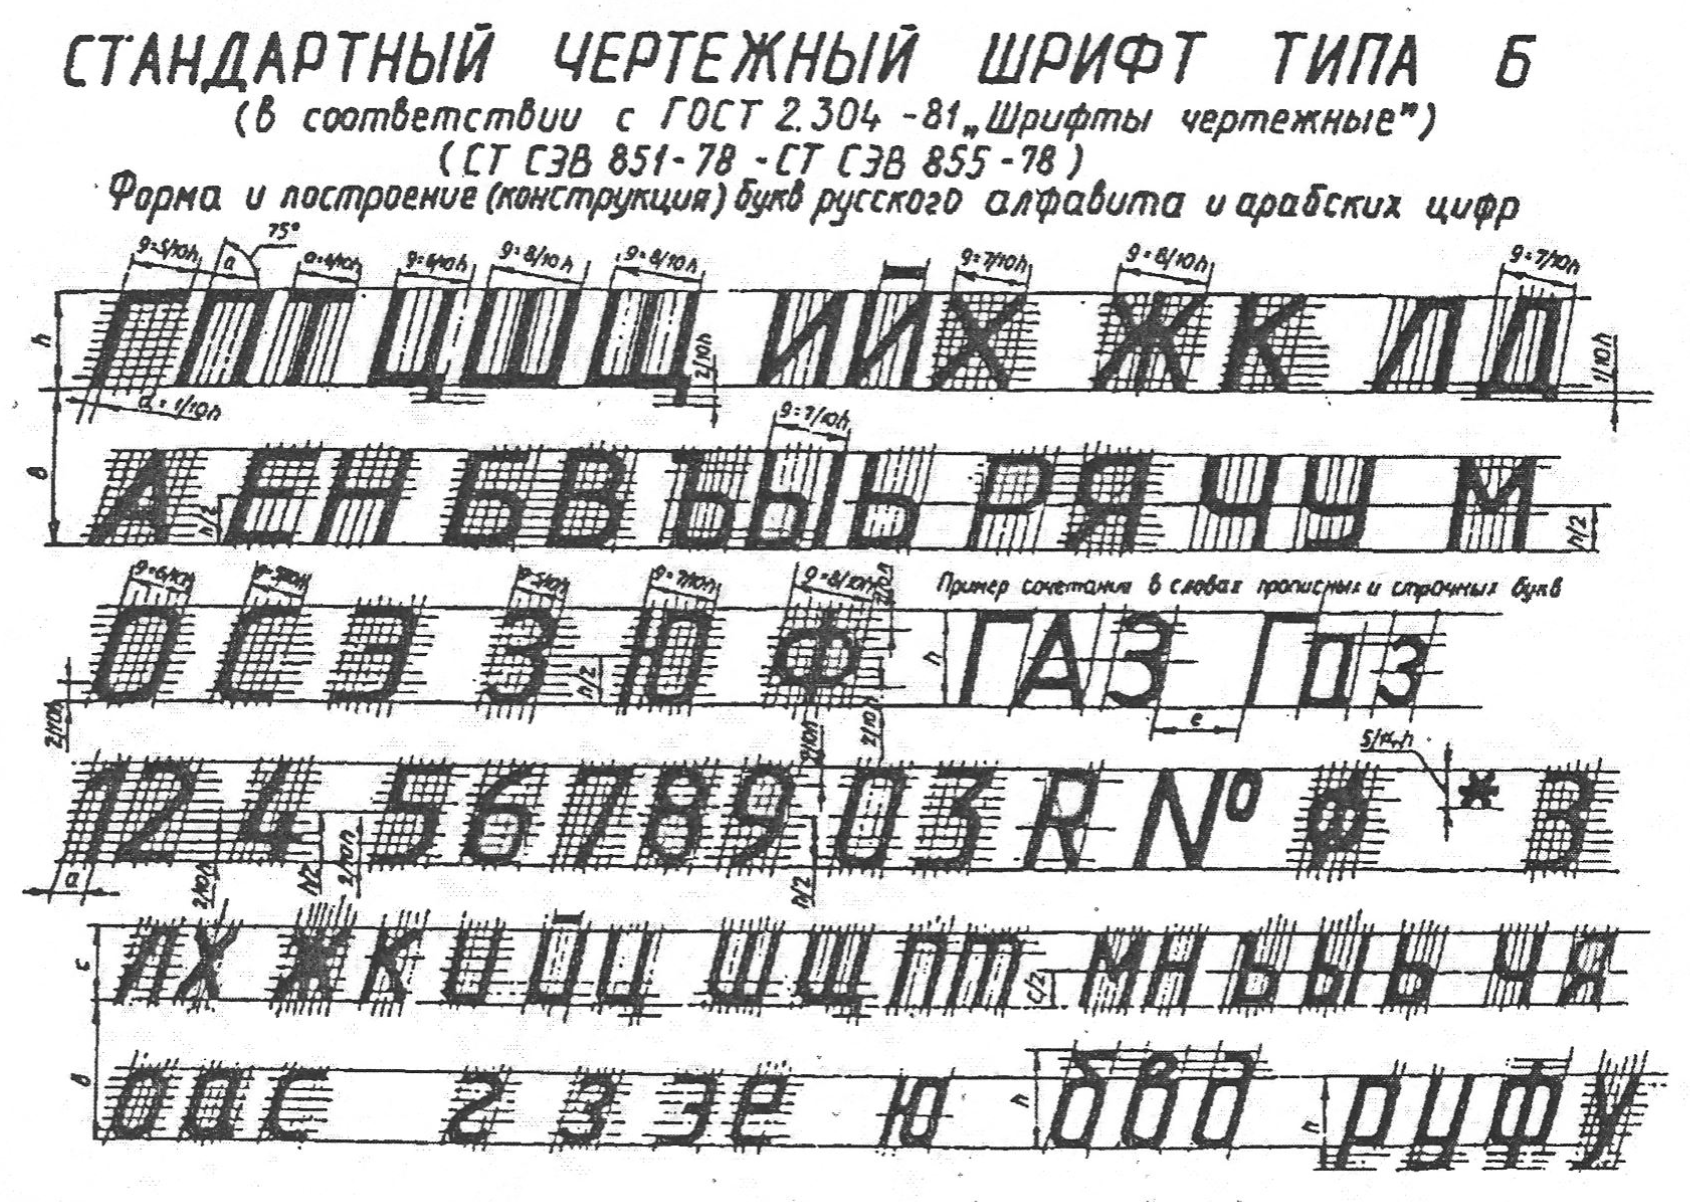 СТАНДАРТНЫЙ ЧЕРТЕЖНЫЙ ШРИФТ ТИПА Б
(в соответствии с ГОСТ 2.304-81 „Шрифты чертежные")
(СТ СЭВ 851-78 - СТ СЭВ 855-78)
Форма и построение (конструкция) букв русского алфавита и арабских цифр
g=5/10h a 75° g=6/10h g=8/10h g=8/10h g=7/10h g=8/10h g=7/10h
h Г П Т Ц Ш Щ 2/10h И Й Х Ж К Л Д 1/10h
d=1/10h g=7/10h
в А h/2 Е Н Б В Ъ Ы Ь Р Я Ч У М h/2
g=6/10h g=5/10h g=5/10h g=7/10h g=8/10h
Пример сочетания в словах прописных и строчных букв
О С Э З h/2 Ю Ф h ГАЗ Гдз
2/10h 2/10h 2/10h e 5/14h
1 2 4 5 6 7 8 9 0 3 R № ф * З
a 2/10h h/2 2/10h h/2
с л х ж к и й ц ш щ п т с/2 м н ъ ы ь ч я
в о а с г з э ё ю h б в д h р у ф у